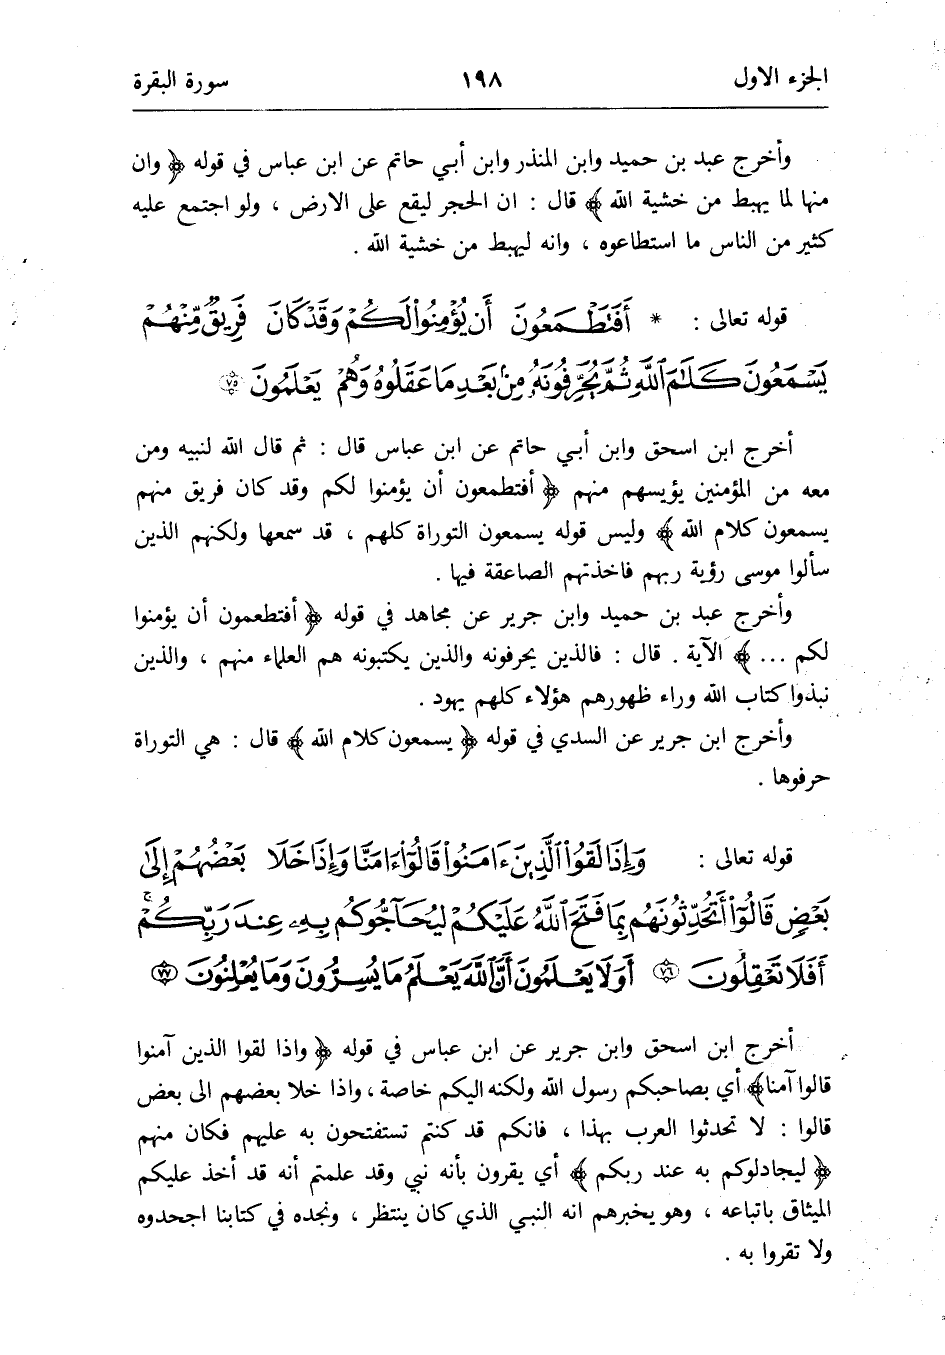 الجزء الاول ١٩٨ سورة البقرة
وأخرج عبد بن حميد وابن المنذر وابن أبي حاتم عن ابن عباس في قوله ﴿ وان
منها لما يهبط من خشية الله ﴾ قال : ان الحجر ليقع على الارض ، ولو اجتمع عليه
كثير من الناس ما استطاعوه ، وانه ليهبط من خشية الله .
قوله تعالى : * أَفَتَطْمَعُونَ أَن يُؤْمِنُواْ لَكُمْ وَقَدْ كَانَ فَرِيقٌ مِّنْهُمْ
يَسْمَعُونَ كَلَٰمَ ٱللَّهِ ثُمَّ يُحَرِّفُونَهُۥ مِنۢ بَعْدِ مَا عَقَلُوهُ وَهُمْ يَعْلَمُونَ ﴿٧٥﴾
أخرج ابن اسحق وابن أبي حاتم عن ابن عباس قال : ثم قال الله لنبيه ومن
معه من المؤمنين يؤيسهم منهم ﴿ أفتطمعون أن يؤمنوا لكم وقد كان فريق منهم
يسمعون كلام الله ﴾ وليس قوله يسمعون التوراة كلهم ، قد سمعها ولكنهم الذين
سألوا موسى رؤية ربهم فاخذتهم الصاعقة فيها .
وأخرج عبد بن حميد وابن جرير عن مجاهد في قوله ﴿ أفتطعمون أن يؤمنوا
لكم ... ﴾ الآية . قال : فالذين يحرفونه والذين يكتبونه هم العلماء منهم ، والذين
نبذوا كتاب الله وراء ظهورهم هؤلاء كلهم يهود .
وأخرج ابن جرير عن السدي في قوله ﴿ يسمعون كلام الله ﴾ قال : هي التوراة
حرفوها .
قوله تعالى : وَإِذَا لَقُواْ ٱلَّذِينَ ءَامَنُواْ قَالُوٓاْ ءَامَنَّا وَإِذَا خَلَا بَعْضُهُمْ إِلَىٰ
بَعْضٍ قَالُوٓاْ أَتُحَدِّثُونَهُم بِمَا فَتَحَ ٱللَّهُ عَلَيْكُمْ لِيُحَآجُّوكُم بِهِۦ عِندَ رَبِّكُمْ ۚ
أَفَلَا تَعْقِلُونَ ﴿٧٦﴾ أَوَلَا يَعْلَمُونَ أَنَّ ٱللَّهَ يَعْلَمُ مَا يُسِرُّونَ وَمَا يُعْلِنُونَ ﴿٧٧﴾
أخرج ابن اسحق وابن جرير عن ابن عباس في قوله ﴿ واذا لقوا الذين آمنوا
قالوا آمنا ﴾ أي بصاحبكم رسول الله ولكنه اليكم خاصة ، واذا خلا بعضهم الى بعض
قالوا : لا تحدثوا العرب بهذا ، فانكم قد كنتم تستفتحون به عليهم فكان منهم
﴿ ليجادلوكم به عند ربكم ﴾ أي يقرون بأنه نبي وقد علمتم أنه قد أخذ عليكم
الميثاق باتباعه ، وهو يخبرهم انه النبي الذي كان ينتظر ، ونجده في كتابنا اجحدوه
ولا تقروا به .